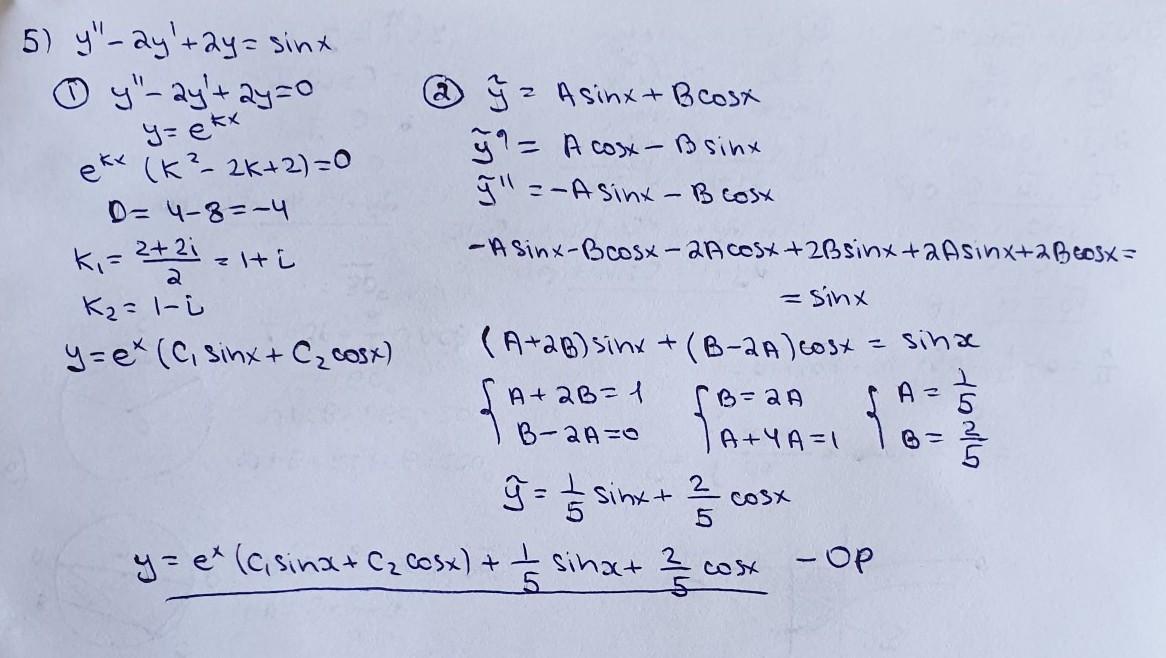 5) y'' - 2y' + 2y = sinx
① y'' - 2y' + 2y = 0
y = e^{kx}
e^{kx} (k² - 2k + 2) = 0
D = 4 - 8 = -4
k₁ = (2 + 2i)/2 = 1 + i
k₂ = 1 - i
y = eˣ (C₁ sinx + C₂ cosx)
② ỹ = A sinx + B cosx
ỹ' = A cosx - B sinx
ỹ'' = -A sinx - B cosx
-A sinx - B cosx - 2A cosx + 2B sinx + 2A sinx + 2B cosx =
= sinx
(A + 2B) sinx + (B - 2A) cosx = sinx
{ A + 2B = 1 { B = 2A { A = 1/5
B - 2A = 0 A + 4A = 1 B = 2/5
ỹ = 1/5 sinx + 2/5 cosx
y = eˣ (C₁ sinx + C₂ cosx) + 1/5 sinx + 2/5 cosx - OP